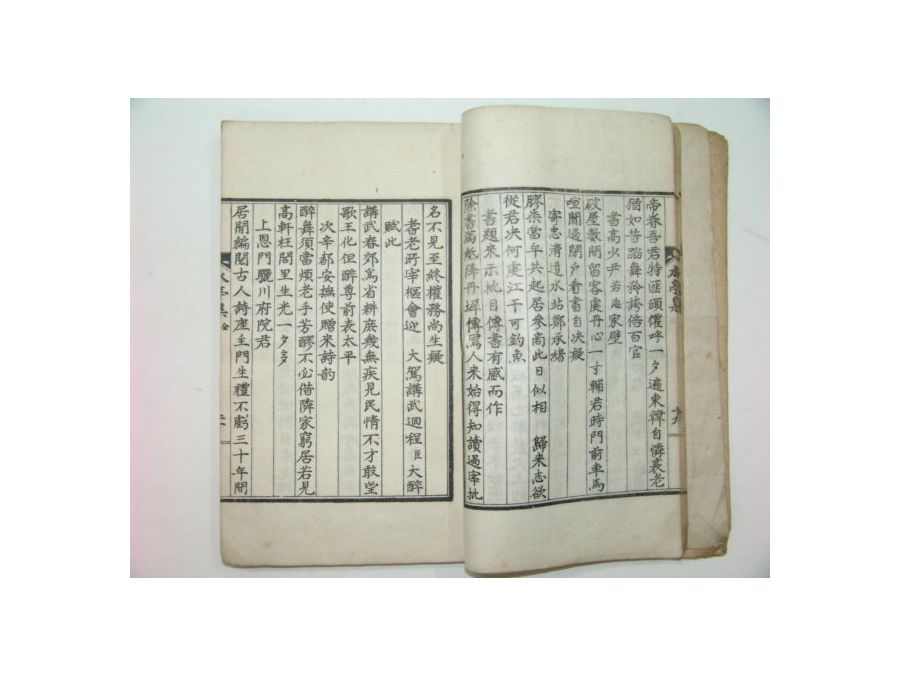 帝眷吾君特匪頒懽呼一夕遍東韓自憐衰老
猶如昔蹈舞矜誇倍百官
書高少尹若海家壁
破屋數間留客處丹心一寸輔君時門前車馬
喧闐過閉户看書自决疑
寄忠淸道水站鄭承緖
膠柒當年共起居參商此日似相 歸来志欲
從君决何處江干可釣魚
書題来示批目傳書有感而作
除書滿紙降丹墀傳寫人来始得知讀過宰批
名不見至終權務尚生疑
耆老所宰樞會迎 大駕講武迴程臣大醉
賦此
講武春郊爲省耕庶幾無疾見民情不才敢望
歌王化但醉尊前表太平
次辛都安撫使贈来詩韵
醉舞須當煩老手苦醪不必借隣家窮居若見
高軒枉閭里生光一夕多
上恩門驪川府院君
居閒編閱古人詩座主門生禮不虧三十年間
亭集
十九